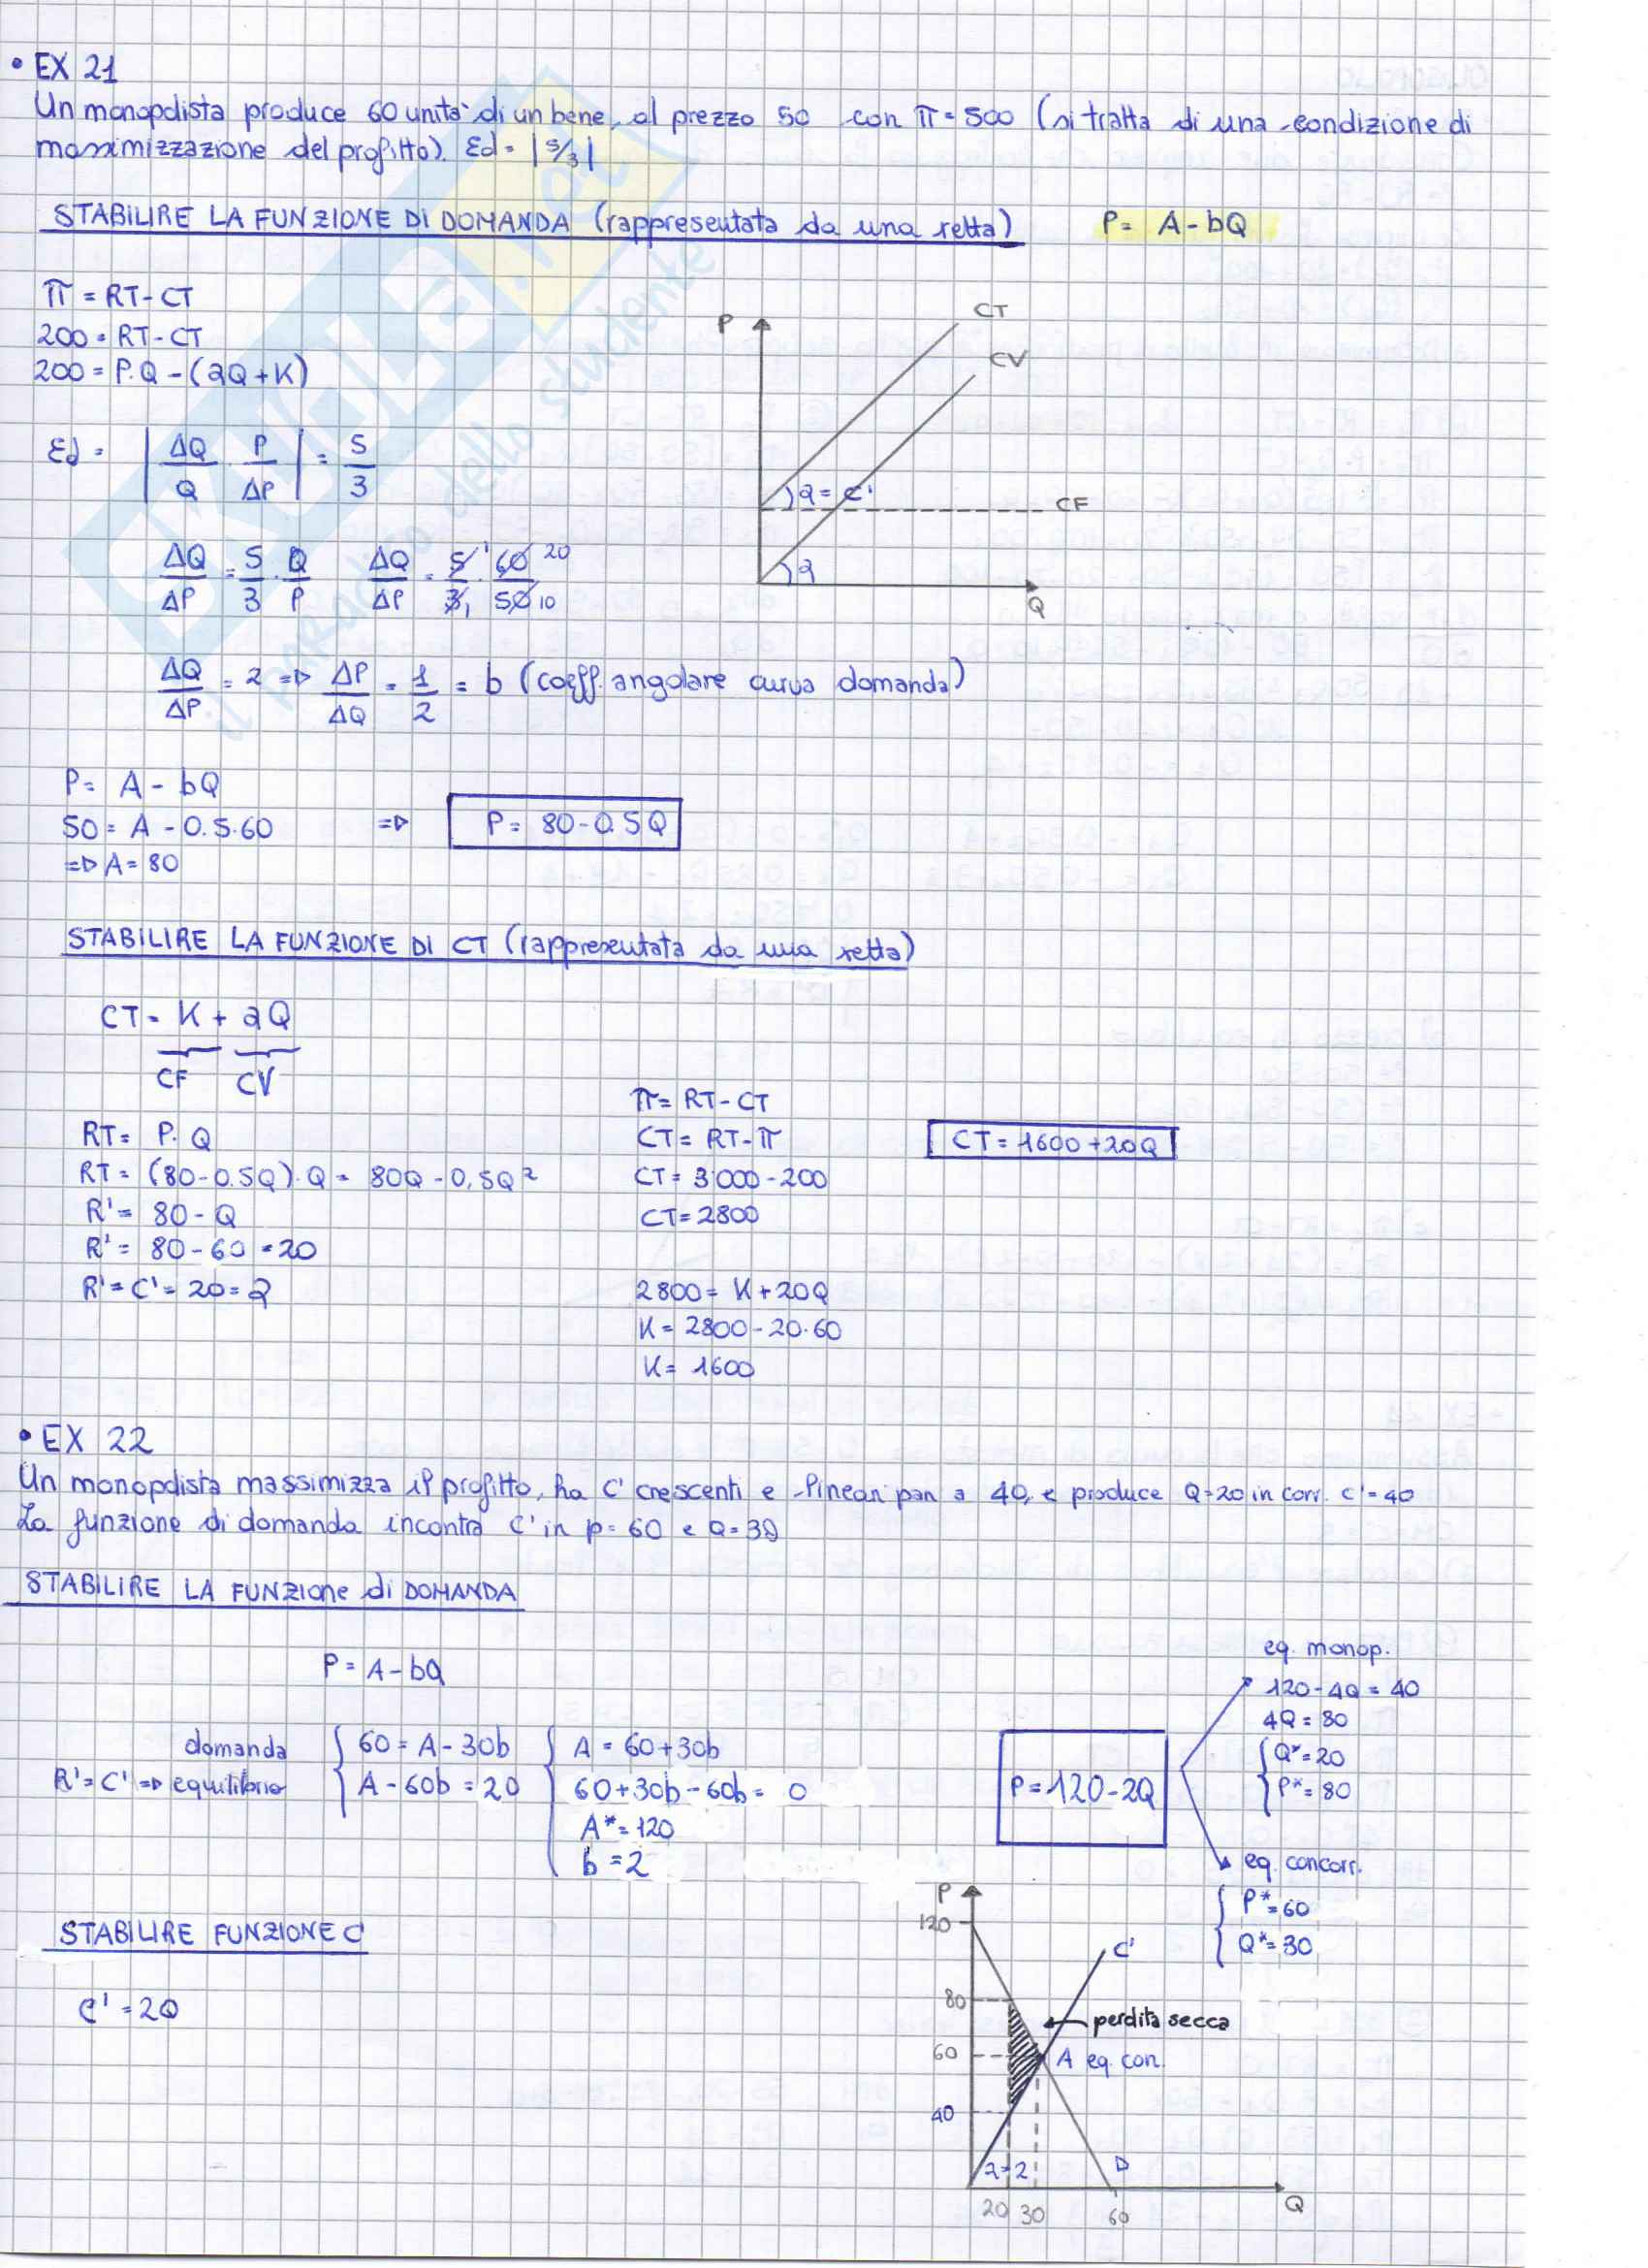 • EX 21
Un monopolista produce 60 unità di un bene, al prezzo 50 con π = 500 (si tratta di una condizione di
massimizzazione del profitto). Ed = |5/3|
STABILIRE LA FUNZIONE DI DOMANDA (rappresentata da una retta) P = A - bQ
π = RT - CT
200 = RT - CT
200 = P.Q - (aQ + K)
Ed = | ΔQ/Q . P/ΔP | = 5/3
ΔQ/ΔP = 5/3 . Q/P ΔQ/ΔP = 5/3 . 60/50 1 20 1 10
ΔQ/ΔP = 2 => ΔP/ΔQ = 1/2 = b (coeff. angolare curva domanda)
P
CT
CV
a = C'
CF
a
Q
P = A - bQ
50 = A - 0.5.60 => P = 80 - 0.5Q
=> A = 80
STABILIRE LA FUNZIONE DI CT (rappresentata da una retta)
CT = K + aQ
CF CV
RT = P. Q
RT = (80 - 0.5Q).Q = 80Q - 0,5Q²
R' = 80 - Q
R' = 80 - 60 = 20
R' = C' = 20 = a
π = RT - CT
CT = RT - π
CT = 3000 - 200
CT = 2800
2800 = K + 20Q
K = 2800 - 20.60
K = 1600
CT = 1600 + 20Q
• EX 22
Un monopolista massimizza il profitto, ha C' crescenti e lineari pari a 40, e produce Q=20 in corr. C' = 40
La funzione di domanda incontra C' in p = 60 e Q = 30
STABILIRE LA FUNZIONE di DOMANDA
P = A - bQ
domanda { 60 = A - 30b { A = 60 + 30b
R' = C' => equilibrio A - 60b = 20 60 + 30b - 60b = 0
A* = 120
b = 2
P = 120 - 2Q
eq. monop.
120 - 4Q = 40
4Q = 80
Q* = 20
P* = 80
eq. concorr.
P* = 60
Q* = 30
STABILIRE FUNZIONE C'
C' = 2Q
P
120
C'
80
perdita secca
60
A eq. con.
40
a = 2
D
20 30 60
Q
il paradiso dello studente